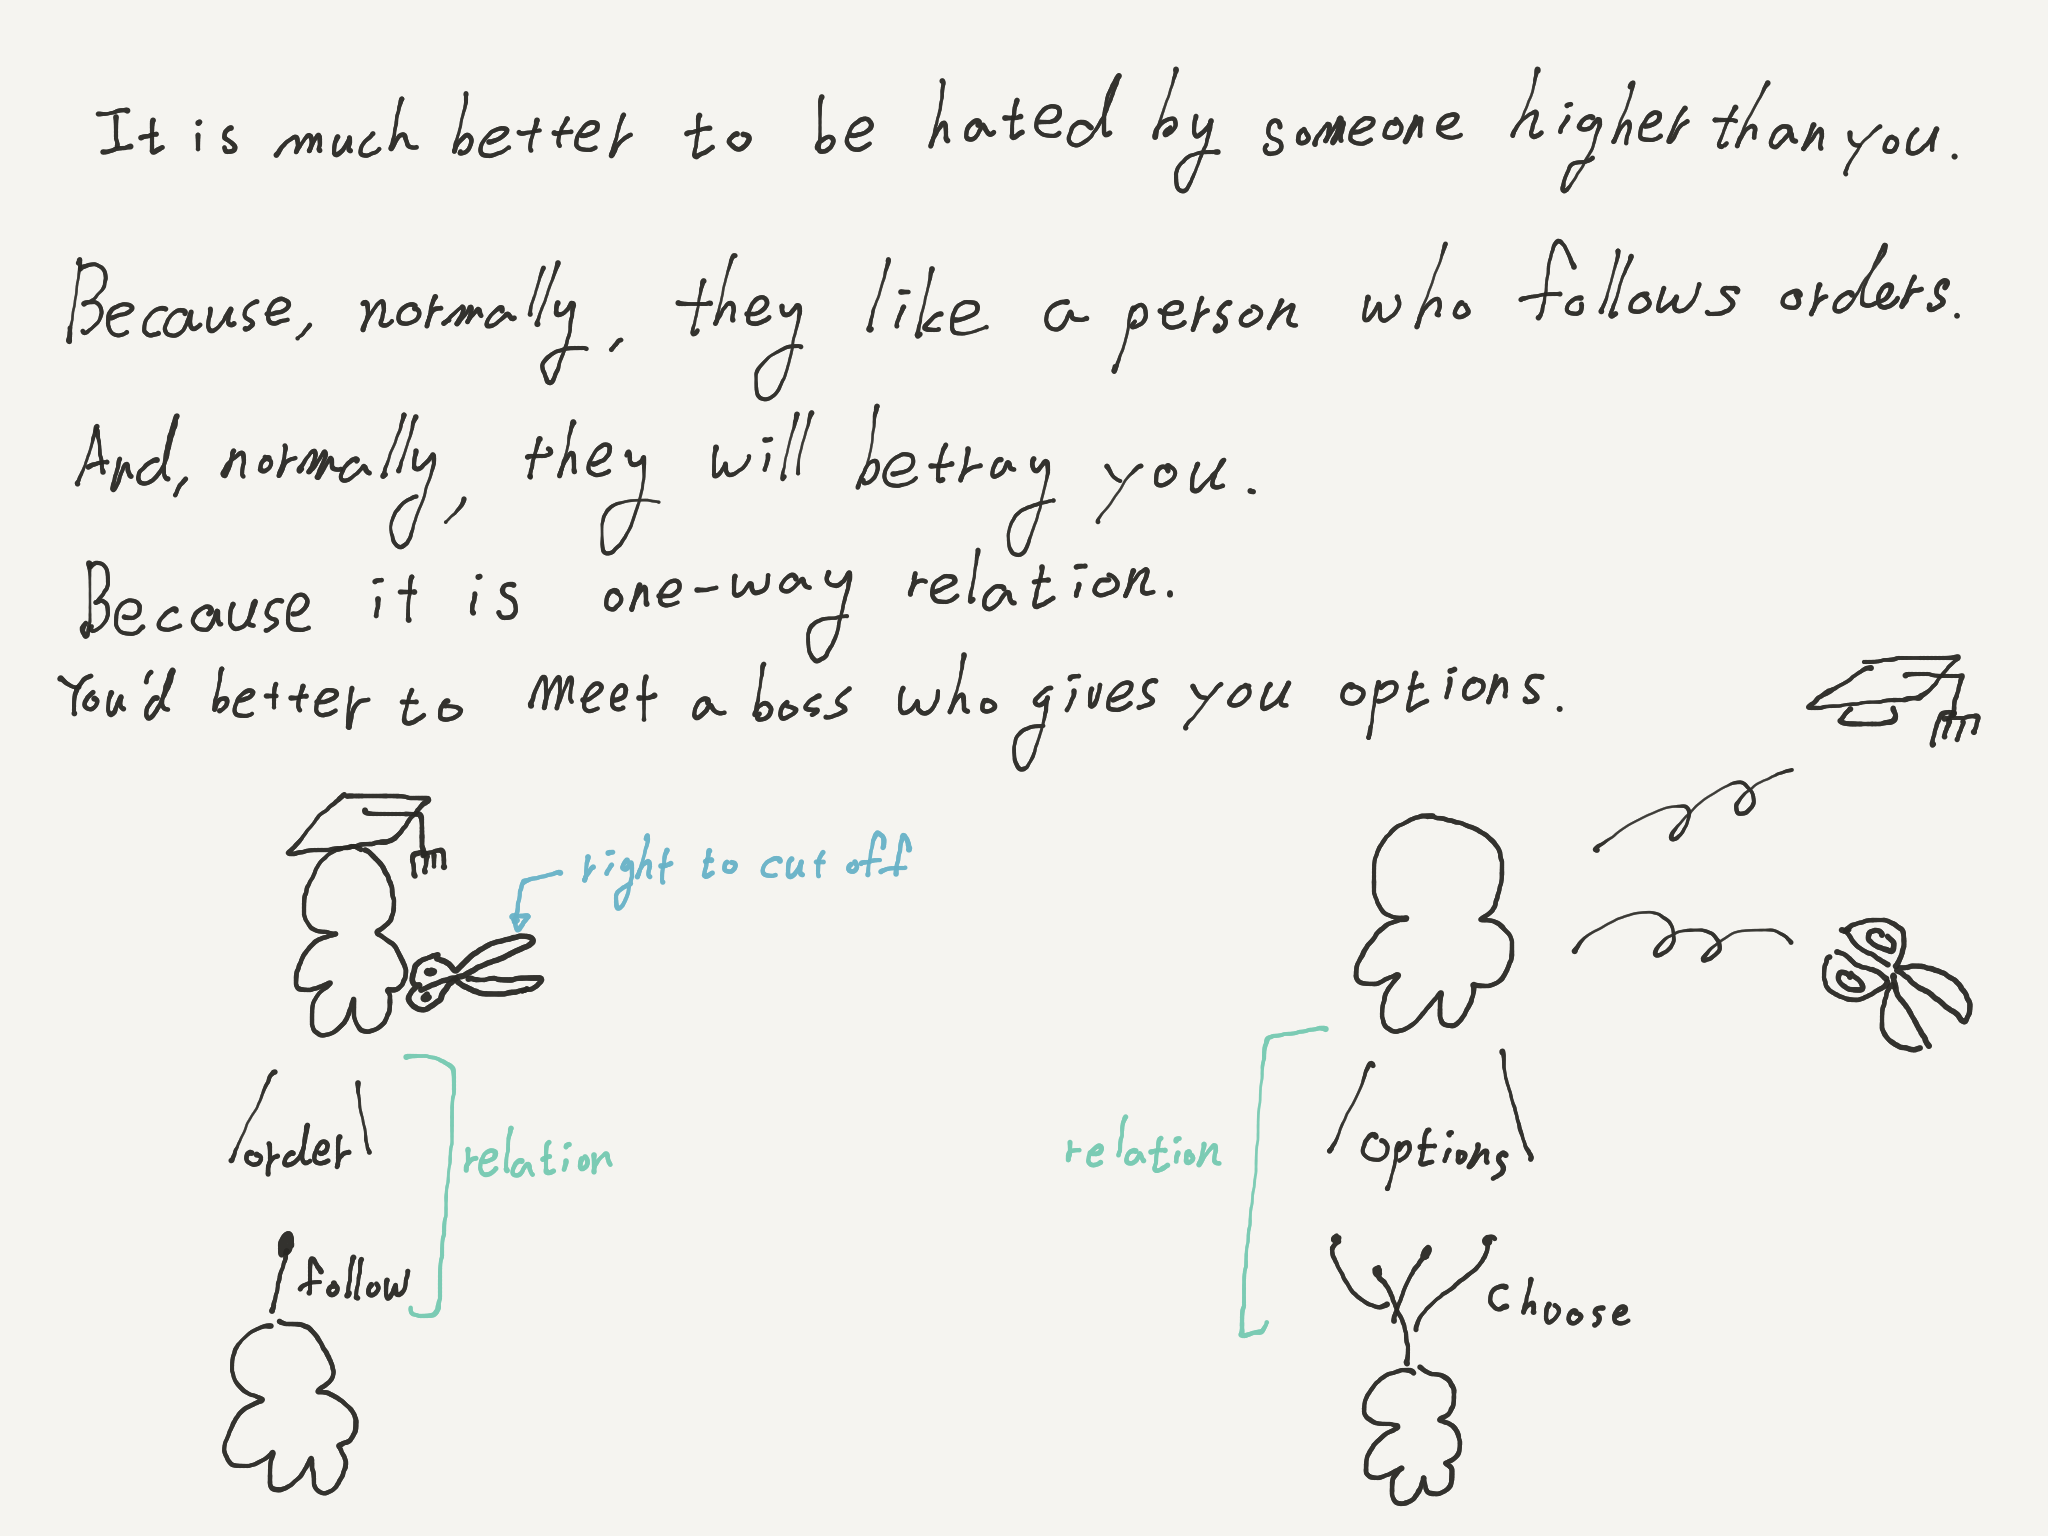 It is much better to be hated by someone higher than you.
Because, normally, they like a person who follows orders.
And, normally, they will betray you.
Because it is one-way relation.
You'd better to meet a boss who gives you options.
right to cut off
order
relation
follow
relation
options
choose